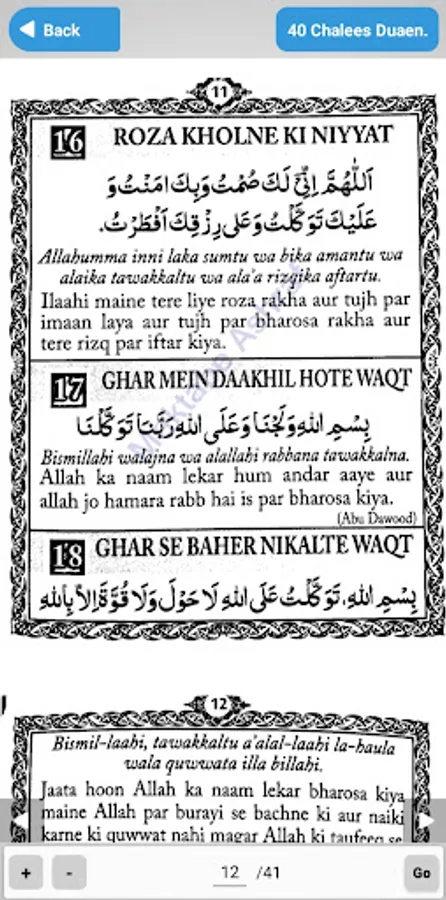 Back
40 Chalees Duaen.
11
16 ROZA KHOLNE KI NIYYAT
اَللّٰهُمَّ اِنِّیْ لَكَ صُمْتُ وَبِكَ اٰمَنْتُ وَ
عَلَيْكَ تَوَكَّلْتُ وَعَلٰى رِزْقِكَ اَفْطَرْتُ.
Allahumma inni laka sumtu wa bika amantu wa
alaika tawakkaltu wa ala'a rizqika aftartu.
Ilaahi maine tere liye roza rakha aur tujh par
imaan laya aur tujh par bharosa rakha aur
tere rizq par iftar kiya.
17 GHAR MEIN DAAKHIL HOTE WAQT
بِسْمِ اللهِ وَلَجْنَا وَعَلَى اللهِ رَبِّنَا تَوَكَّلْنَا
Bismillahi walajna wa alallahi rabbana tawakkalna.
Allah ka naam lekar hum andar aaye aur
allah jo hamara rabb hai is par bharosa kiya.
(Abu Dawood)
18 GHAR SE BAHER NIKALTE WAQT
بِسْمِ اللهِ، تَوَكَّلْتُ عَلَى اللهِ لَا حَوْلَ وَلَا قُوَّةَ اِلَّا بِاللهِ
12
Bismil-laahi, tawakkaltu a'alal-laahi la-haula
wala quwwata illa billahi.
Jaata hoon Allah ka naam lekar bharosa kiya
maine Allah par burayi se bachne ki aur naiki
karne ki quwwat nahi magar Allah ki taufeeq se
+ - 12 /41 Go